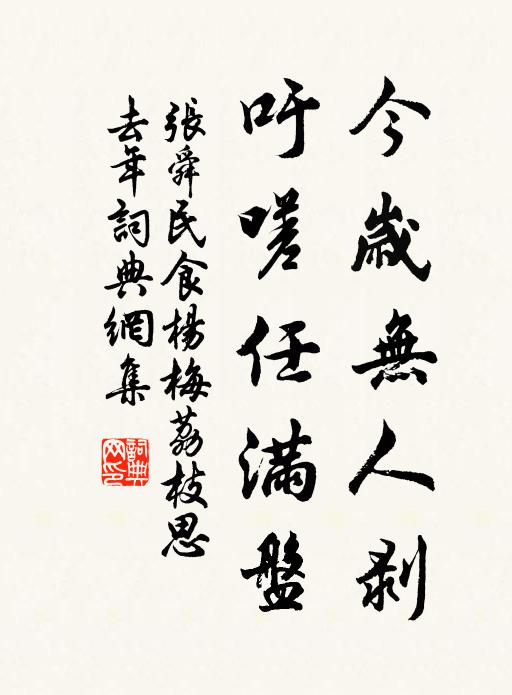 今歲無人剥
吁嗟任滿盤
張舜民食楊梅荔枝思
去年詞典網集
詞典
网印